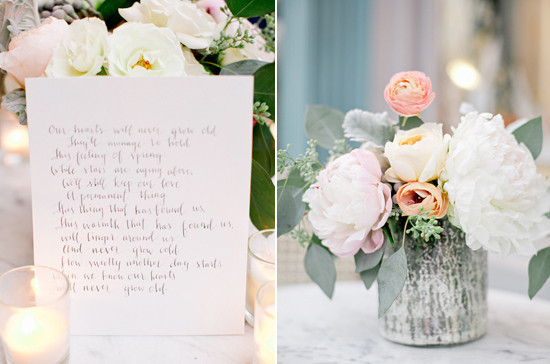 Our hearts will never grow old
They'll manage to hold
This feeling of spring
While stars are aging above,
We'll still keep our love
A permanent thing
This thing that has found us,
This warmth that has found us,
will linger around us
And never grow old
How swiftly another day starts
when we know our hearts
will never grow old